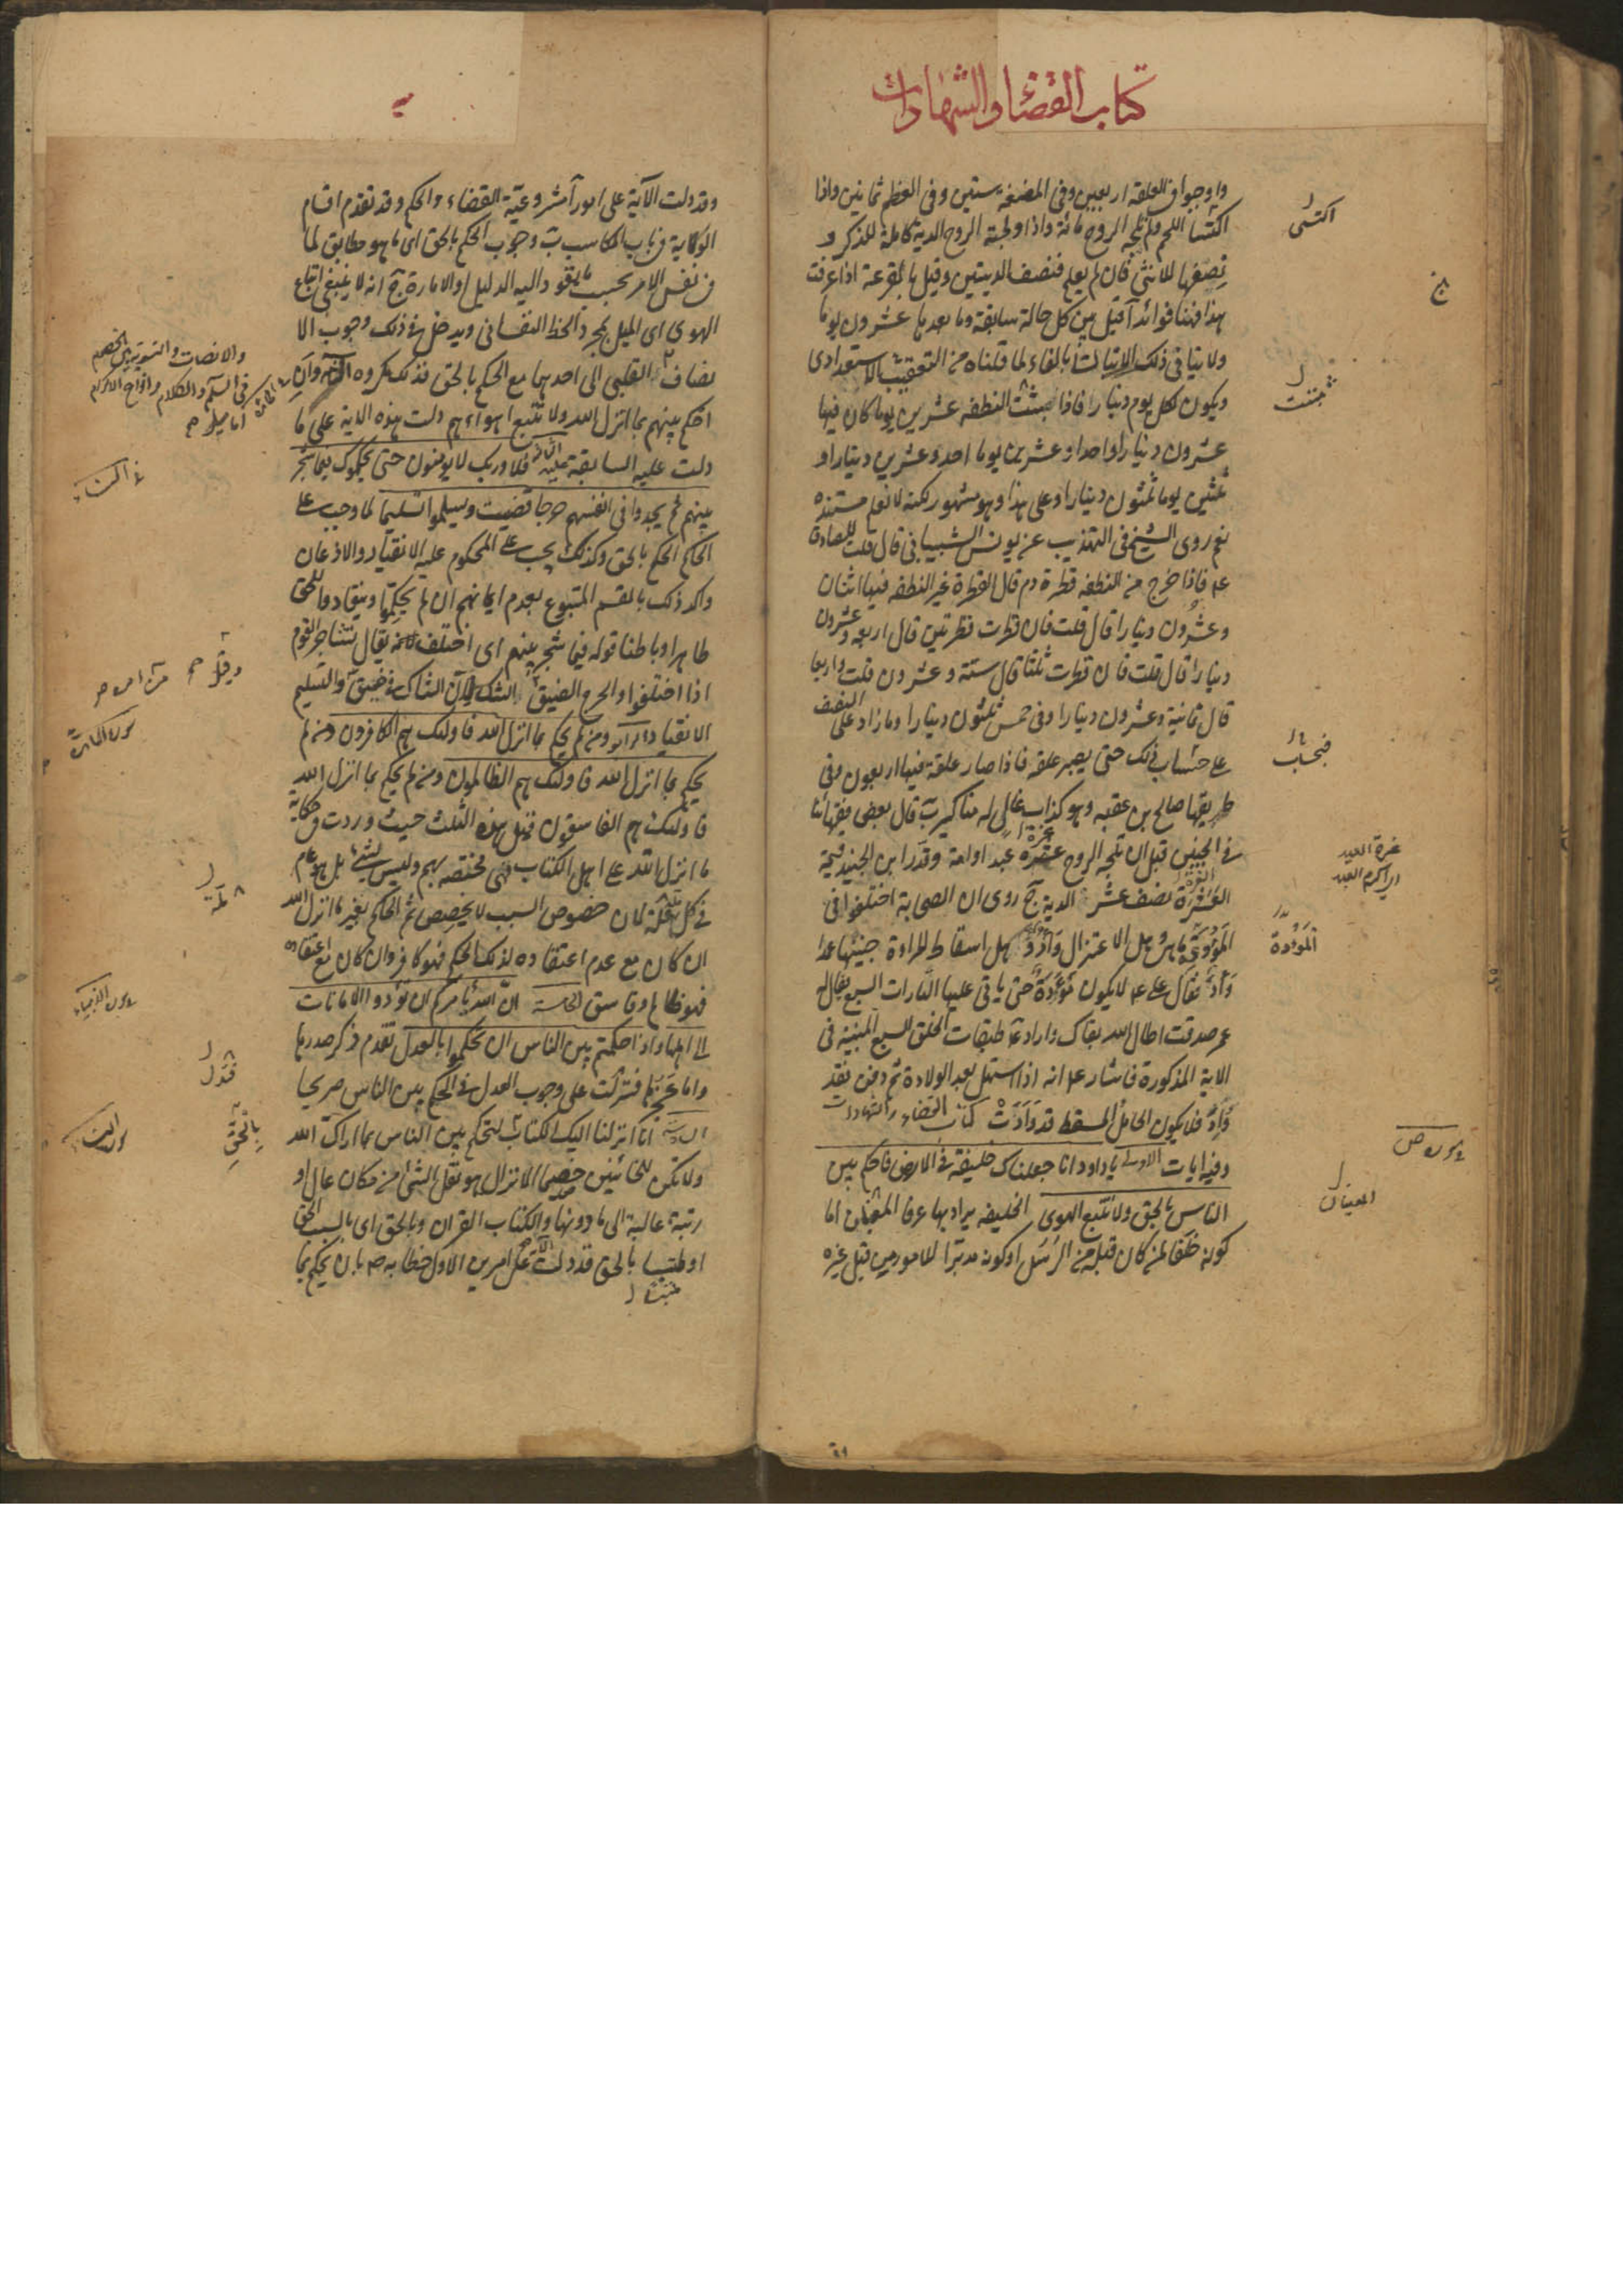 كتاب القضاء والشهادات
واوجبوا فى العلقة اربعين وفى المضغة ستين وفى العظم ثمانين واذا
اكتسا اللحم ولم تلجه الروح مائة واذا ولجته الروح الدية كاملة للذكر و
نصفها للانثى فان لم يعلم فنصف الديتين وقيل بالقرعة اذا عرفت
هذا فهنا فوائد آ قيل بين كل حالة سابقة وما بعدها عشرون يوما
ولا ينافى ذلك الاتيان بالفاء لما قلناه من التعقيب الاستعدادى
ويكون لكل يوم دينار فاذا مكثت النطفة عشرين يوما كان فيها
عشرون دينارا واحدا وعشرين يوما احد وعشرين دينارا و
ثلثين يوما ثلثون دينارا وعلى هذا وهو مشهور لكنه لا نعلم مستنده
نعم روى الشيخ فى التهذيب عن يونس الشيبانى قال قلت للصادق
ع فاذا خرج من النطفة قطرة دم قال القطرة غير النطفة فيها اثنان
وعشرون دينارا قال قلت فان قطرت قطرتين قال اربعة وعشرون
دينارا قال قلت فان قطرت ثلثا قال ستة وعشرون قلت واربعا
قال ثمانية وعشرون دينارا وفى خمس ثلثون دينارا وما زاد على النصف
على حساب ذلك حتى يصير علقة فاذا صار علقة فيها اربعون وفى
طريقها صالح بن عقبه وهو كذاب غال له مناكير ب قال بعض فقهائنا
فى الجنين قبل ان تلجه الروح غرة عبد او امة وقدر ابن الجنيد قيمة
الغرة نصف عشر الدية ج روى ان الصحابة اختلفوا فى
الموؤدة ما هى وهل الاعتزال وأد وهل اسقاط المراة جنينها عمدا
وأد فقال على ع لا يكون موؤدة حتى ياتى عليها التارات السبع فقال له
عمر صدقت اطال الله بقاك واراد ع طبقات الخلق السبع المبينة فى
الاية المذكورة فاشار ع انه اذا استهل بعد الولادة ثم دفن فقد
وئد فلا يكون الحامل المسقط قد وأدت كتاب القضاء والشهادات
وفيه ايات الاولى يا داود انا جعلناك خليفة فى الارض فاحكم بين
الناس بالحق ولا تتبع الهوى الخليفة يراد بها عرفا المعنيان اما
كونه خلفا لمن كان قبله من الرسل او كونه مدبرا للامور من قبل غيره
اكتسى
مكثت
فبحساب
غرة العبد
اى اكرم العبد
الموؤدة
سورة ص
المعنيان
وقد دلت الآية على امور آ مشروعية القضاء والحكم وقد تقدم اقسام
الولاية فى باب المكاسب ب وجوب الحكم بالحق اى ما هو مطابق لما
فى نفس الامر بحسب ما يقود اليه الدليل او الامارة ج انه لا ينبغى اتباع
الهوى اى الميل بمجرد الحظ النفسانى ويدخل فى ذلك وجوب الا
نصاف القلبى الى احدهما مع الحكم بالحق فذلك مكروه الثانية وان
احكم بينهم بما انزل الله ولا تتبع اهواءهم دلت هذه الاية على ما
دلت عليه السابقة الثالثة فلا وربك لا يؤمنون حتى يحكموك فيما شجر
بينهم ثم لا يجدوا فى انفسهم حرجا مما قضيت ويسلموا تسليما لما وجب على
الحاكم الحكم بالحق وكذلك يجب على المحكوم عليه الانقياد والاذعان
واكد ذلك بالقسم المتبوع بعدم ايمانهم ان لم يحكموا وينقادوا للحق
ظاهرا وباطنا قوله فيما شجر بينهم اى اختلف فانه يقال تشاجر القوم
اذا اختلفوا والحرج الضيق الشك لان الشاك فى ضيق والتسليم
الانقياد الرابعة ومن لم يحكم بما انزل الله فاولئك هم الكافرون ومن لم
يحكم بما انزل الله فاولئك هم الظالمون ومن لم يحكم بما انزل الله
فاولئك هم الفاسقون قيل هذه الثلث حيث وردت فى حكاية
ما انزل الله على اهل الكتاب فهى مختصة بهم وليس بشئ بل هو عام
فى كل ملة لان خصوص السبب لا يخصص ثم الحاكم بغير ما انزل الله
ان كان مع عدم اعتقاده لذلك الحكم فهو كافر وان كان مع اعتقاده
فهو ظالم وفاسق الخامسة ان الله يامركم ان تؤدوا الامانات
الى اهلها واذا حكمتم بين الناس ان تحكموا بالعدل تقدم ذكر صدرها
واما عجزها فتدلت على وجوب العدل فى الحكم بين الناس صريحا
السادسة انا انزلنا اليك الكتاب لتحكم بين الناس بما اراك الله
ولا تكن للخائنين خصيما الانزال هو نقل الشئ من مكان عال او
رتبة عالية الى ما دونها والكتاب القران وبالحق اى بالسبب الحق
او ملتبسا بالحق قد دلت الاية على امرين الاول خطابه ص بان يحكم بما
والانصات والتسوية بين الخصوم
فى السلام والكلام وانواع الاكرام
اما ميل
وقيل
سورة المائدة
ملة
فتدل
بالحق
سورة النساء